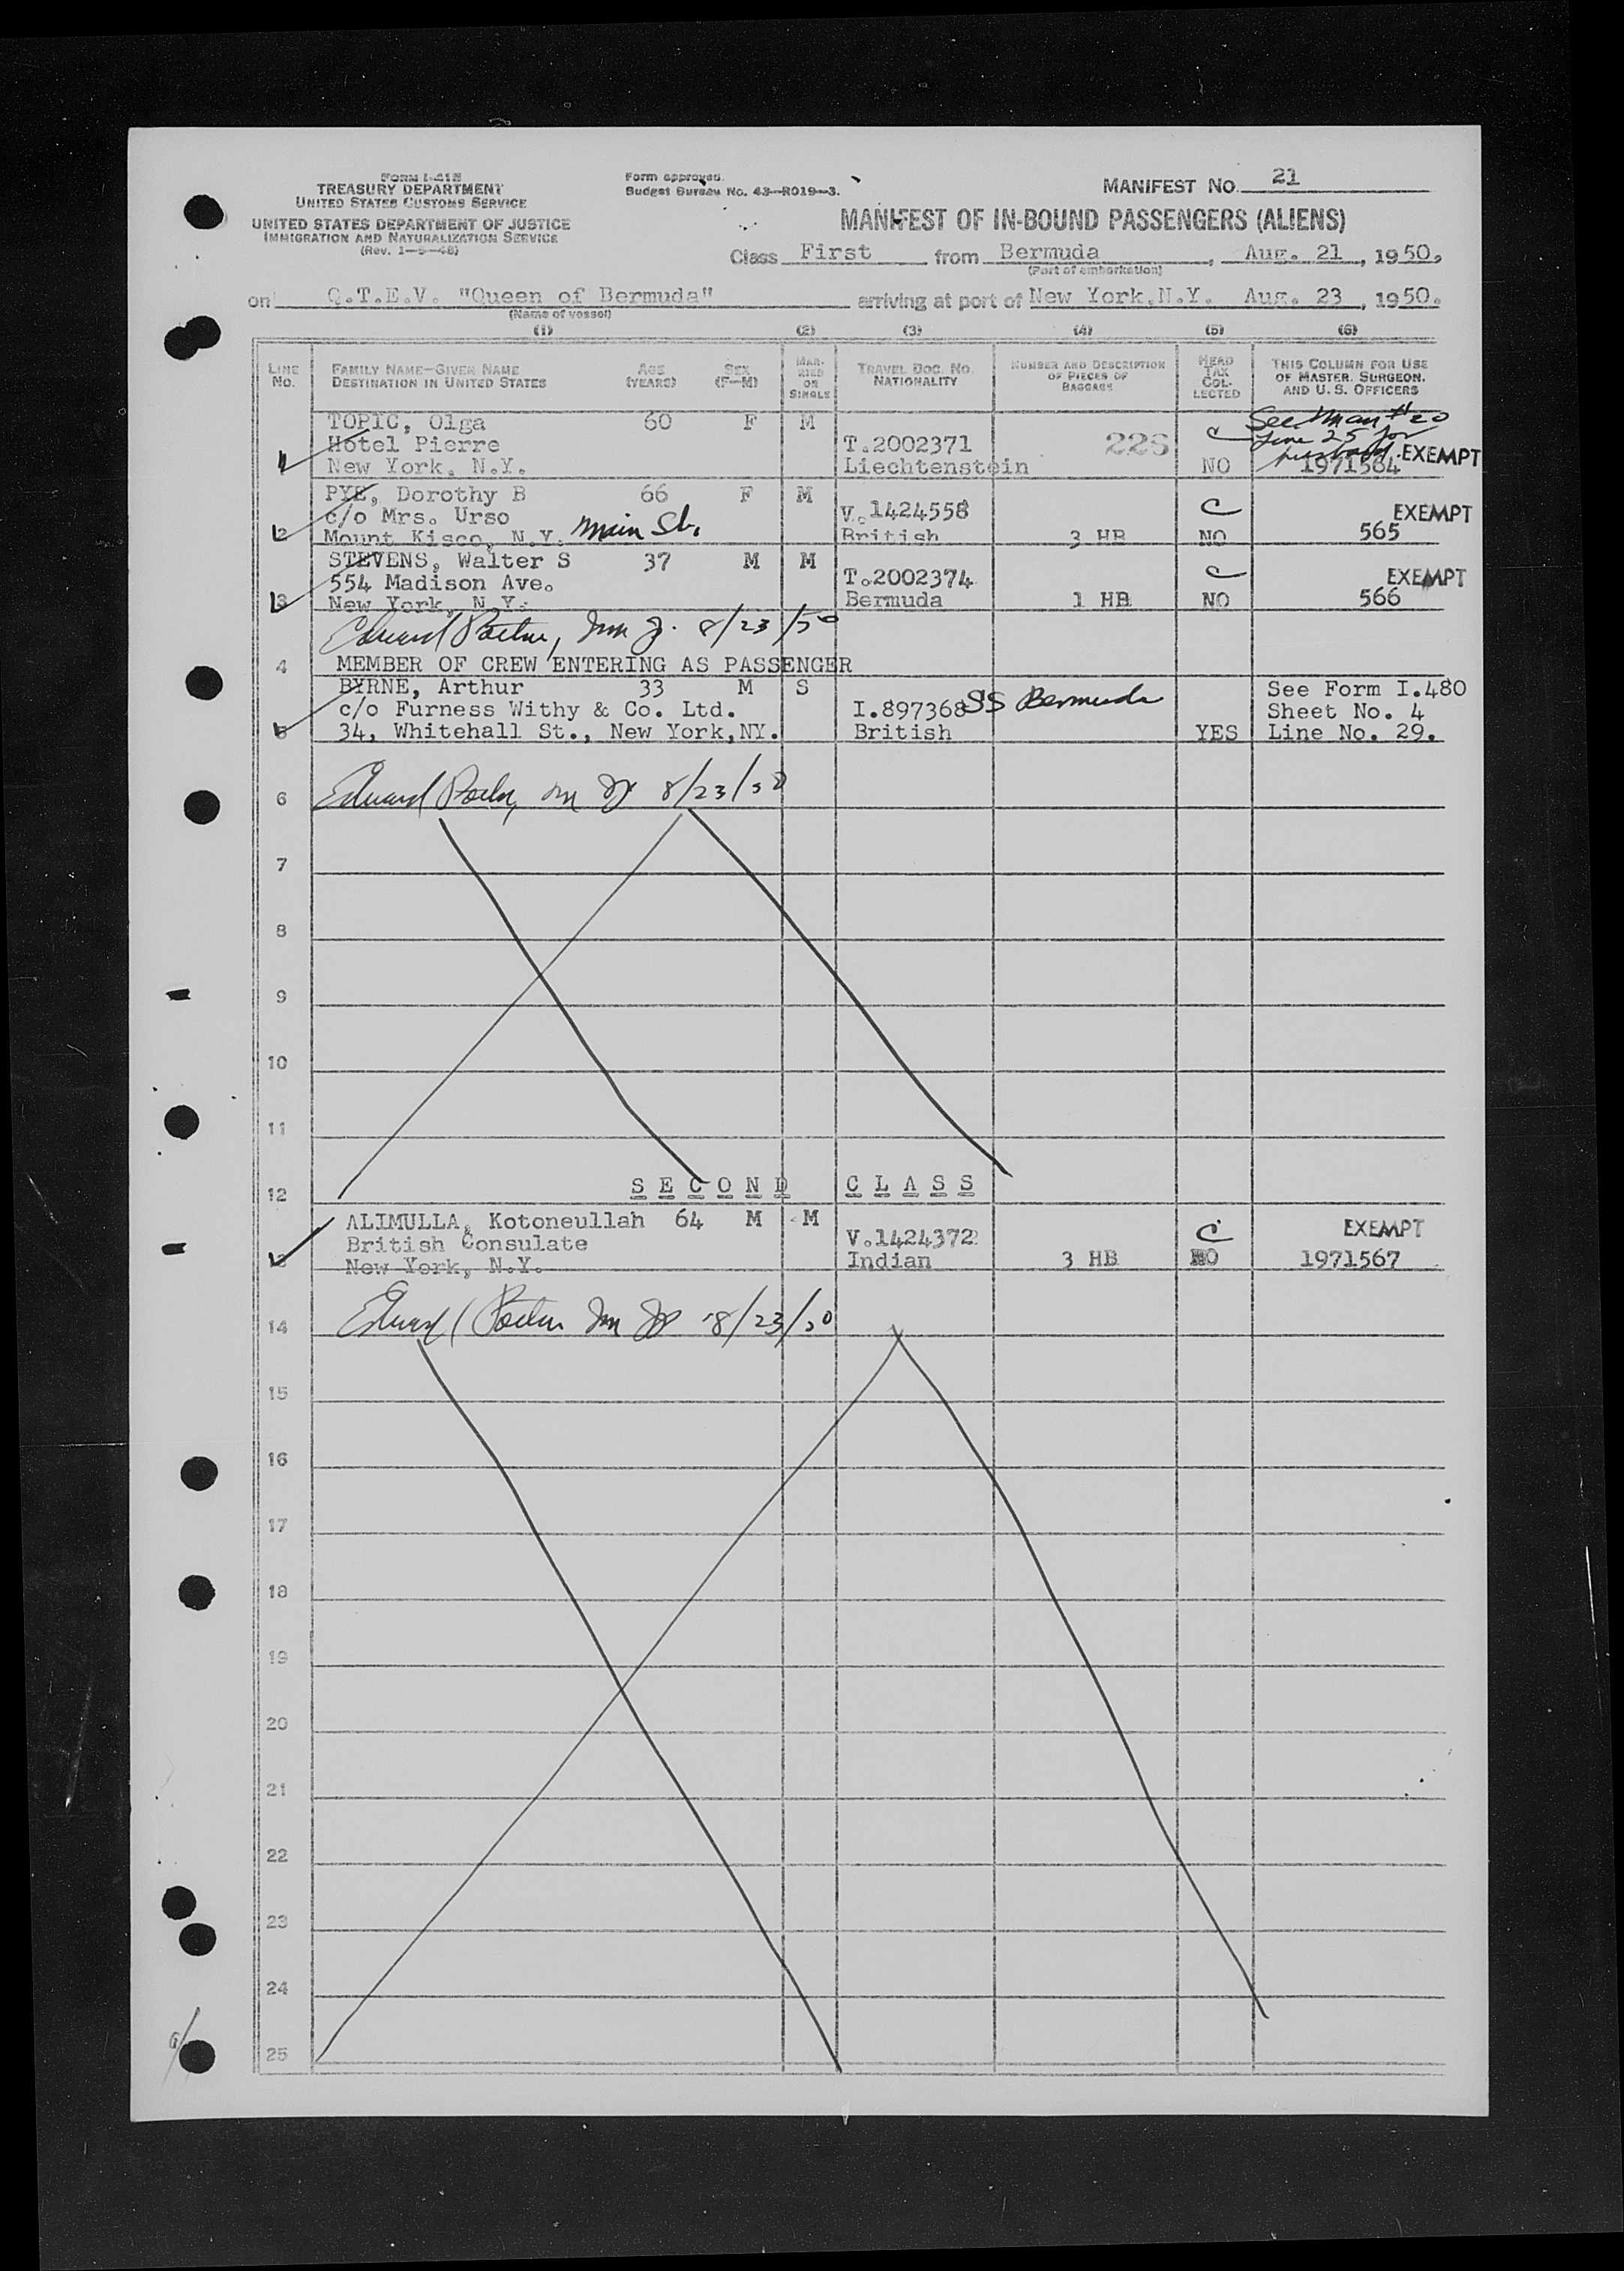 FORM I-418
TREASURY DEPARTMENT
UNITED STATES CUSTOMS SERVICE
UNITED STATES DEPARTMENT OF JUSTICE
IMMIGRATION AND NATURALIZATION SERVICE
(Rev. 1-5-48)
Form approved.
Budget Bureau No. 43-R019-3.
MANIFEST NO. 21
MANIFEST OF IN-BOUND PASSENGERS (ALIENS)
Class First from Bermuda, Aug. 21, 1950.
(Port of embarkation)
on Q.T.E.V. "Queen of Bermuda" arriving at port of New York,N.Y. Aug. 23, 1950.
(Name of vessel)
(1) (2) (3) (4) (5) (6)
LINE NO.
FAMILY NAME-GIVEN NAME
DESTINATION IN UNITED STATES
AGE (YEARS)
SEX (F-M)
MARRIED OR SINGLE
TRAVEL DOC. NO. NATIONALITY
NUMBER AND DESCRIPTION OF PIECES OF BAGGAGE
HEAD TAX COLLECTED
THIS COLUMN FOR USE OF MASTER, SURGEON, AND U. S. OFFICERS
TOPIC, Olga 60 F M See Man #20
Hotel Pierre T.2002371 226 C line 25 for
1 New York, N.Y. Liechtenstein NO husband. 1971564 EXEMPT
PYE, Dorothy B 66 F M C
c/o Mrs. Urso V.1424558 EXEMPT
2 Mount Kisco, N.Y. Main St. British 3 HB NO 565
STEVENS, Walter S 37 M M C
554 Madison Ave. T.2002374 EXEMPT
3 New York, N.Y. Bermuda 1 HB NO 566
Edward 8/23/50
4 MEMBER OF CREW ENTERING AS PASSENGER
BYRNE, Arthur 33 M S See Form I.480
c/o Furness Withy & Co. Ltd. I.897368 SS Bermuda Sheet No. 4
5 34, Whitehall St., New York,NY. British YES Line No. 29.
6 Edward 8/23/50
7
8
9
10
11
12 SECOND CLASS
ALIMULLA, Kotoneullah 64 M M EXEMPT
British Consulate V.1424372 C
13 New York, N.Y. Indian 3 HB NO 1971567
14 Edward 8/23/50
15
16
17
18
19
20
21
22
23
24
25